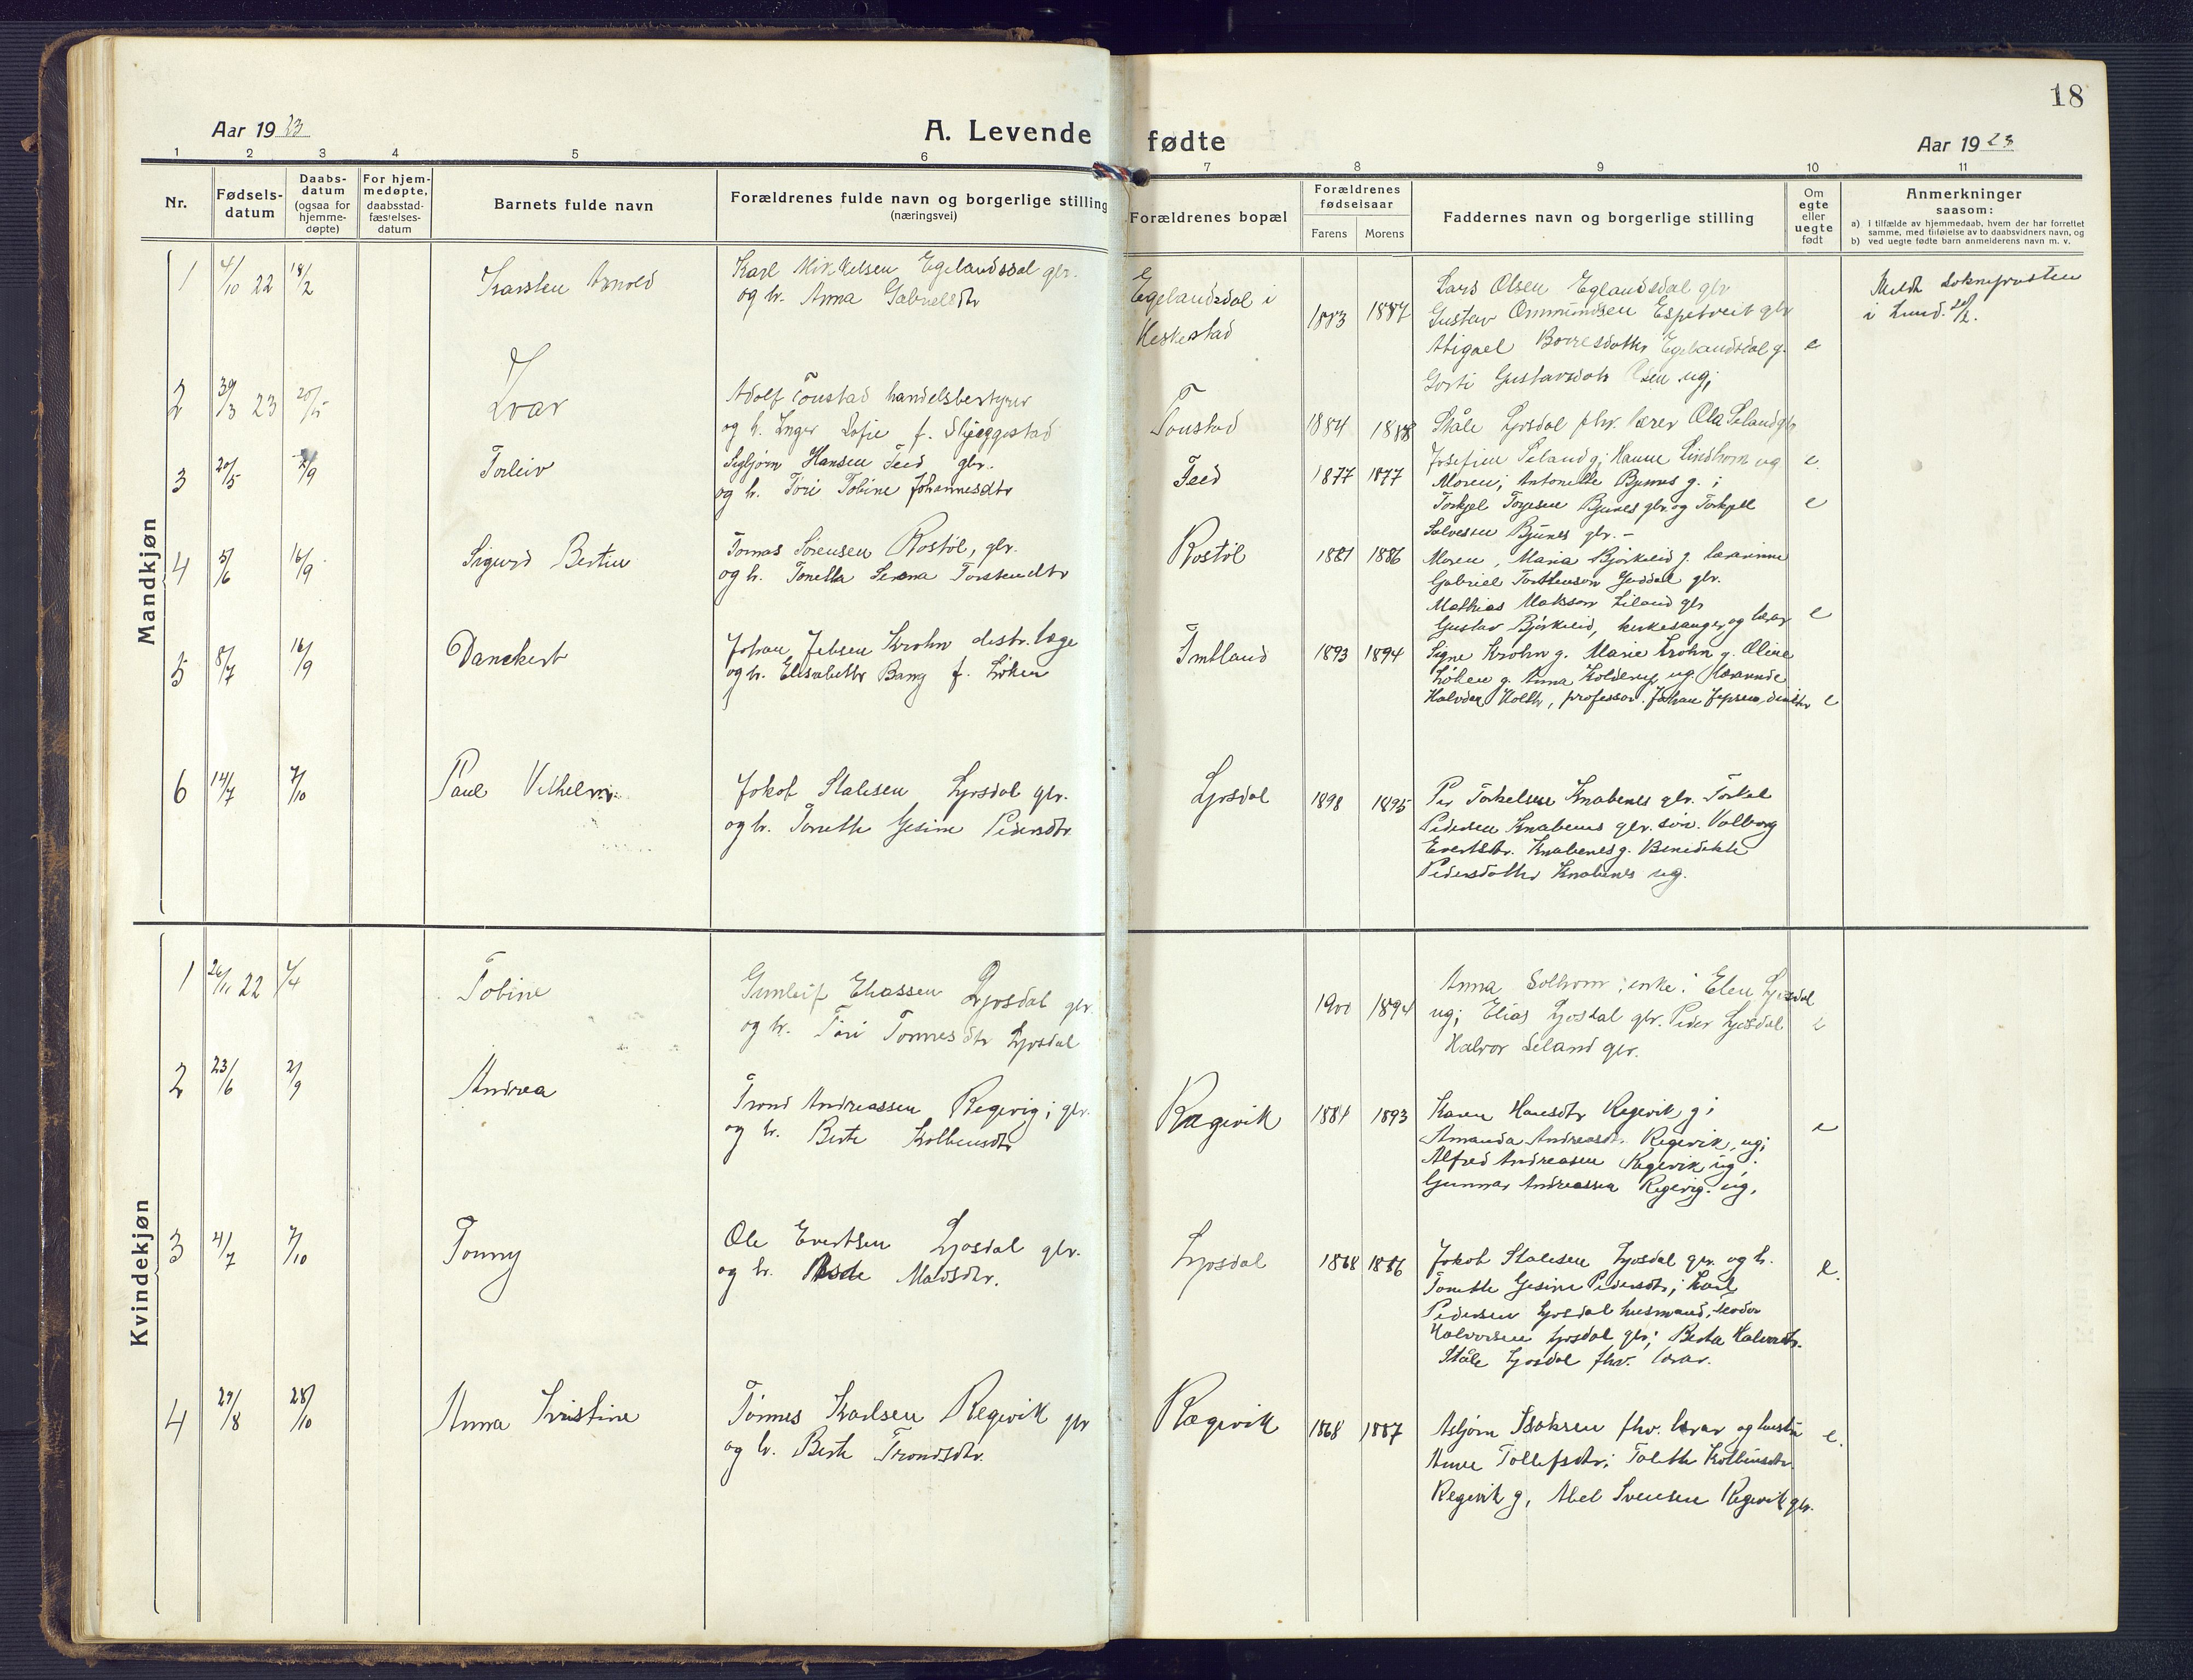 18
Aar 19 23
A. Levende fødte
Aar 19 23
1 2 3 4 5 6 7 8 9 10 11
Nr.
Fødsels-
datum
Daabs-
datum
(ogsaa for
hjemme-
døpte)
For hjem-
medøpte,
daabsstad-
fæstelses-
datum
Barnets fulde navn
Forældrenes fulde navn og borgerlige stilling
(næringsvei)
Forældrenes bopæl
Forældrenes
fødselsaar
Farens Morens
Faddernes navn og borgerlige stilling
Om
egte
eller
uegte
født
Anmerkninger
saasom:
a) i tilfælde av hjemmedaab, hvem der har forrettet
samme, med tilføielse av to daabsvidners navn, og
b) ved uegte fødte barn anmelderens navn m. v.
Mandkjøn
1 4/10 22 18/2 Karsten Arnold
Karl Mikkelsen Egelandsdal gbr.
og h. Anna Gabrielsdtr
Egelandsdal i
Heskestad
1883 1887
Lars Olsen Eglandsdal gbr
Gustav Ommundsen Espetveit gbr
Abigael Borresdatter Egelandsdal g. e
Gustavsdatr Olsen ug;
Meldt soknepresten
i Lund.
2 30/3 23 20/5 Ivar
Adolf Tonstad handelsbestyrer
og h. Inger Sofie f. Skjeggestad
Tonstad
1884 1888
Ståle Ljosdal fhv. lærer Ola Seland gbr
Josefine Seland g; Hanne Lindholm ug e.
3 20/5 2/9 Torleiv
Sigbjørn Hansen Feed gbr.
og h. Tori Tobine Johannesdtr
Feed
1877 1877
Moren; Antonette Bjunes g. ;
Torkjel Torjesen Bjunes gbr og Torkjell e
Salvesen Bjunes gbr. -
4 5/6 16/9 Sigurd Bertin
Tomas Sørensen Rostøl, gbr.
og h. Tonella Serena Torstendtr
Rostøl
1881 1886
Moren, Maria Bjørkeid g. lærarinne
Gabriel Torstenson Josdal gbr.
Mathias Maksson Liland gbr
Gustav Bjørkeid, kirkesanger og lærar e
5 8/7 16/9 Danckert
Johan Jebsen Krohn distr. læge
og h. Elisabeth Bang f. Løken
Fintland
1893 1894
Signe Krohn g. Marie Krohn g. Oline
Løken g. Anna Kolderup ug. lærerinde
Halvdan Holth, professor. Johan Jepsen, direktør e
6 14/7 7/10 Paul Vilhelm
Jakob Stalesen Ljosdal gbr.
og h. Tonette Gesine Pedersdtr
Ljosdal
1898 1895
Per Torkelsen Knabenes gbr. Torkel
Pedersen Knabenes gbr. søn. Valborg
Evertsdtr. Knabenes g. Benedikte
Pedersdatter Knabenes ug.
Kvindekjøn
1 26/11 22 2/4 Tobine
Gunleif Eliassen Ljosdal gbr.
og h. Tori Tonnesdtr Ljosdal
1900 1894
Anna Solhom; enke; Elen Ljosdal
ug; Elias Ljosdal gbr. Peder Ljosdal e
Halvor Seland gbr.
2 23/6 2/9 Andrea
Trond Andreassen Regevig; gbr.
og h. Berte Kolbensdtr
Rægevik
1881 1893
Karen Hansdtr Regevik g; e
Amanda Andreasdtr. Regevik, ug;
Alfred Andreasen Regevik ug;
Gunnar Andreassen Regevig. ug.
3 4/7 7/10 Tonny
Ole Evertsen Ljosdal gbr.
og h. Madsdtr.
Ljosdal
1868 1886
Jakob Stalesen Ljosdal gbr. og h.
Tonette Gesine Pedersdtr; Karl e.
Pedersen Ljosdal husmand,
Halvorsen Ljosdal gbr; Berta Halvorsdtr.
Ståle Ljosdal fhv. lærar.
4 29/8 28/10 Anna Kristine
Tønnes Karlsen Regevik gbr
og h. Berte Trondsdtr.
Rægevik
1868 1887
Asbjørn Isaksen fhv. lærar og hustru e.
Anne Tollefsdtr; Tolette Kolbensdtr
Regevik g, Abel Svensen Regevik gbr.